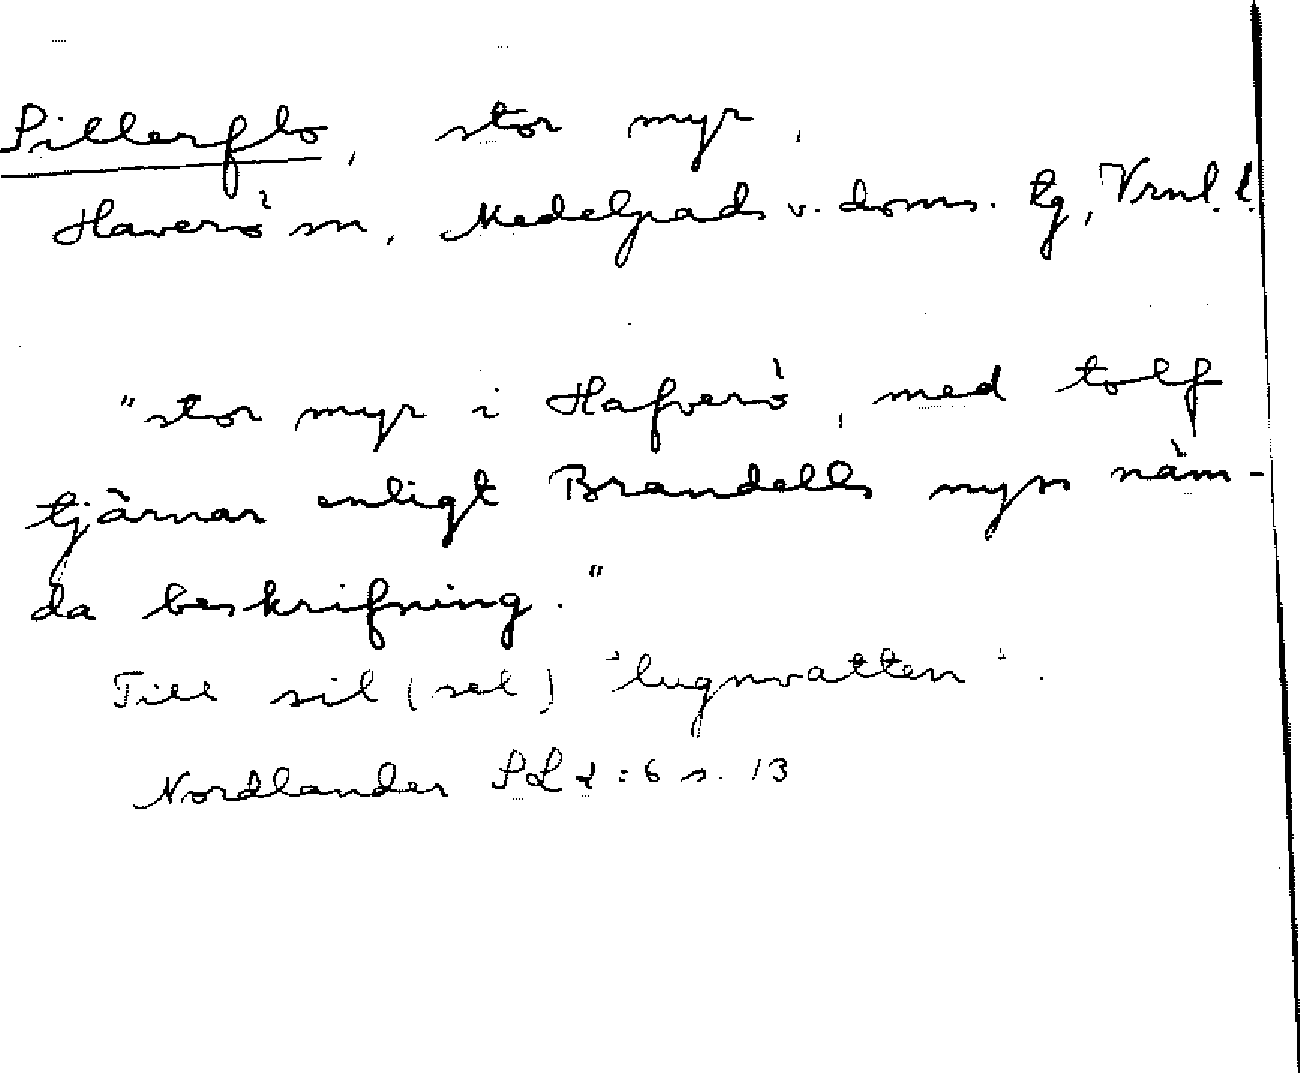 Sillerflo, stor myr,
Haverö sn, Medelpads v. doms. tg, Vrnl. l.
"stor myr i Hafverö, med tolf
tjärnar enligt Brandells nyss näm-
da beskrifning."
Till sil (sel) 'lugnvatten'.
Nordlander SL 2:6 s. 13